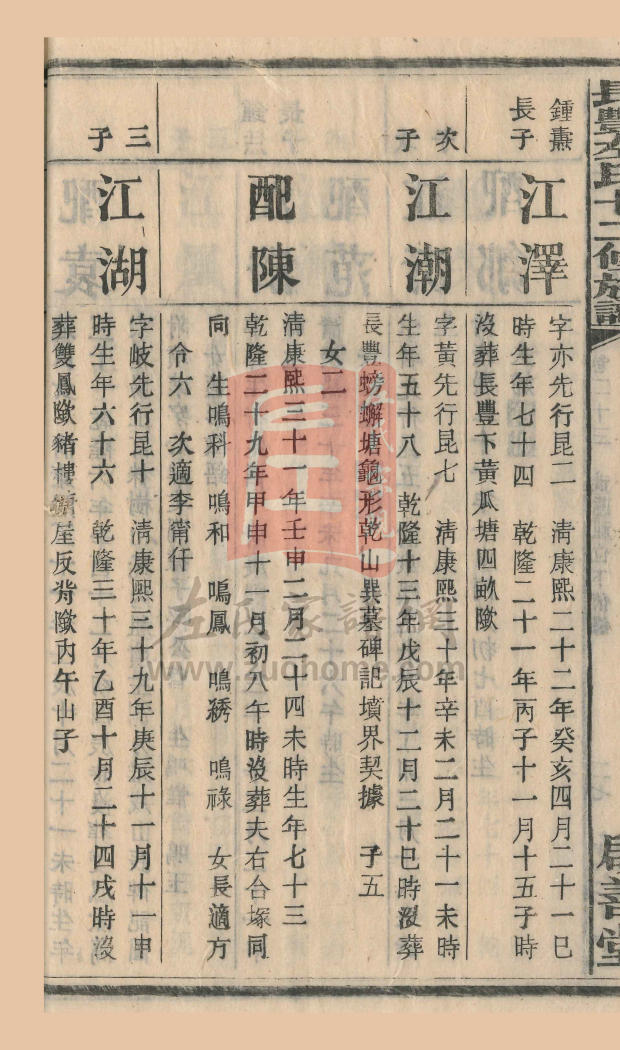 長豐左氏十二修族譜
啟善堂
鍾燾
長子
江澤
字亦先行昆二 清康熙二十二年癸亥四月二十一巳
時生年七十四 乾隆二十一年丙子十一月十五子時
沒葬長豐下黃瓜塘四畝墩
次子
江潮
字黃先行昆七 清康熙三十年辛未二月二十一未時
生年五十八 乾隆十三年戊辰十二月二十巳時沒葬
長豐螃蠏塘龜形乾山巽墓碑記墳界契據 子五
女二
配陳
清康熙三十一年壬申二月二十四未時生年七十三
乾隆二十九年甲申十一月初八午時沒葬夫右合塚同
向 生鳴科 鳴和 鳴鳳 鳴綉 鳴祿 女長適方
令六 次適李甯仟
三子
江湖
字岐先行昆十 清康熙三十九年庚辰十一月十一申
時生年六十六 乾隆三十年乙酉十月二十四戌時沒
葬雙鳳墩豬樓屋反背墩內午山子
左氏家譜網
www.zuohome.com